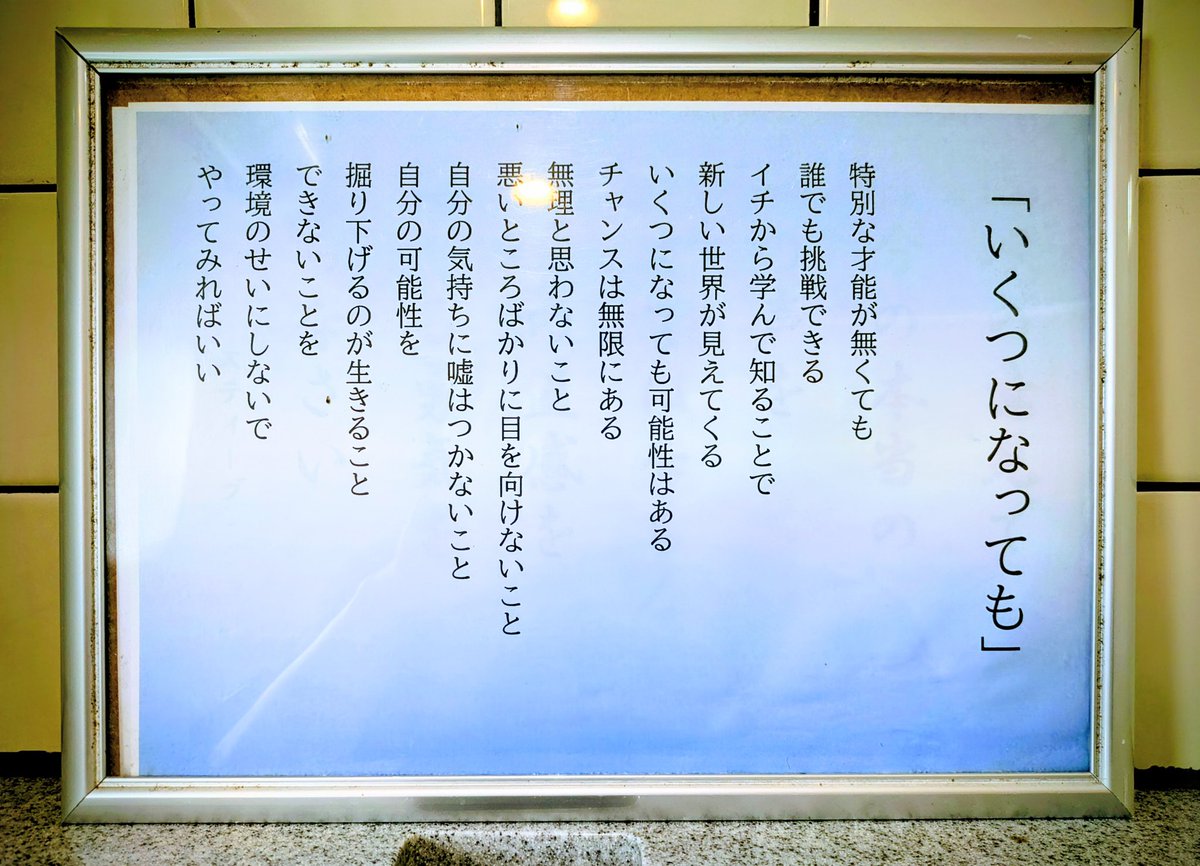 「いくつになっても」
特別な才能が無くても
誰でも挑戦できる
イチから学んで知ることで
新しい世界が見えてくる
いくつになっても可能性はある
チャンスは無限にある
無理と思わないこと
悪いところばかりに目を向けないこと
自分の気持ちに嘘はつかないこと
自分の可能性を
掘り下げるのが生きること
できないことを
環境のせいにしないで
やってみればいい